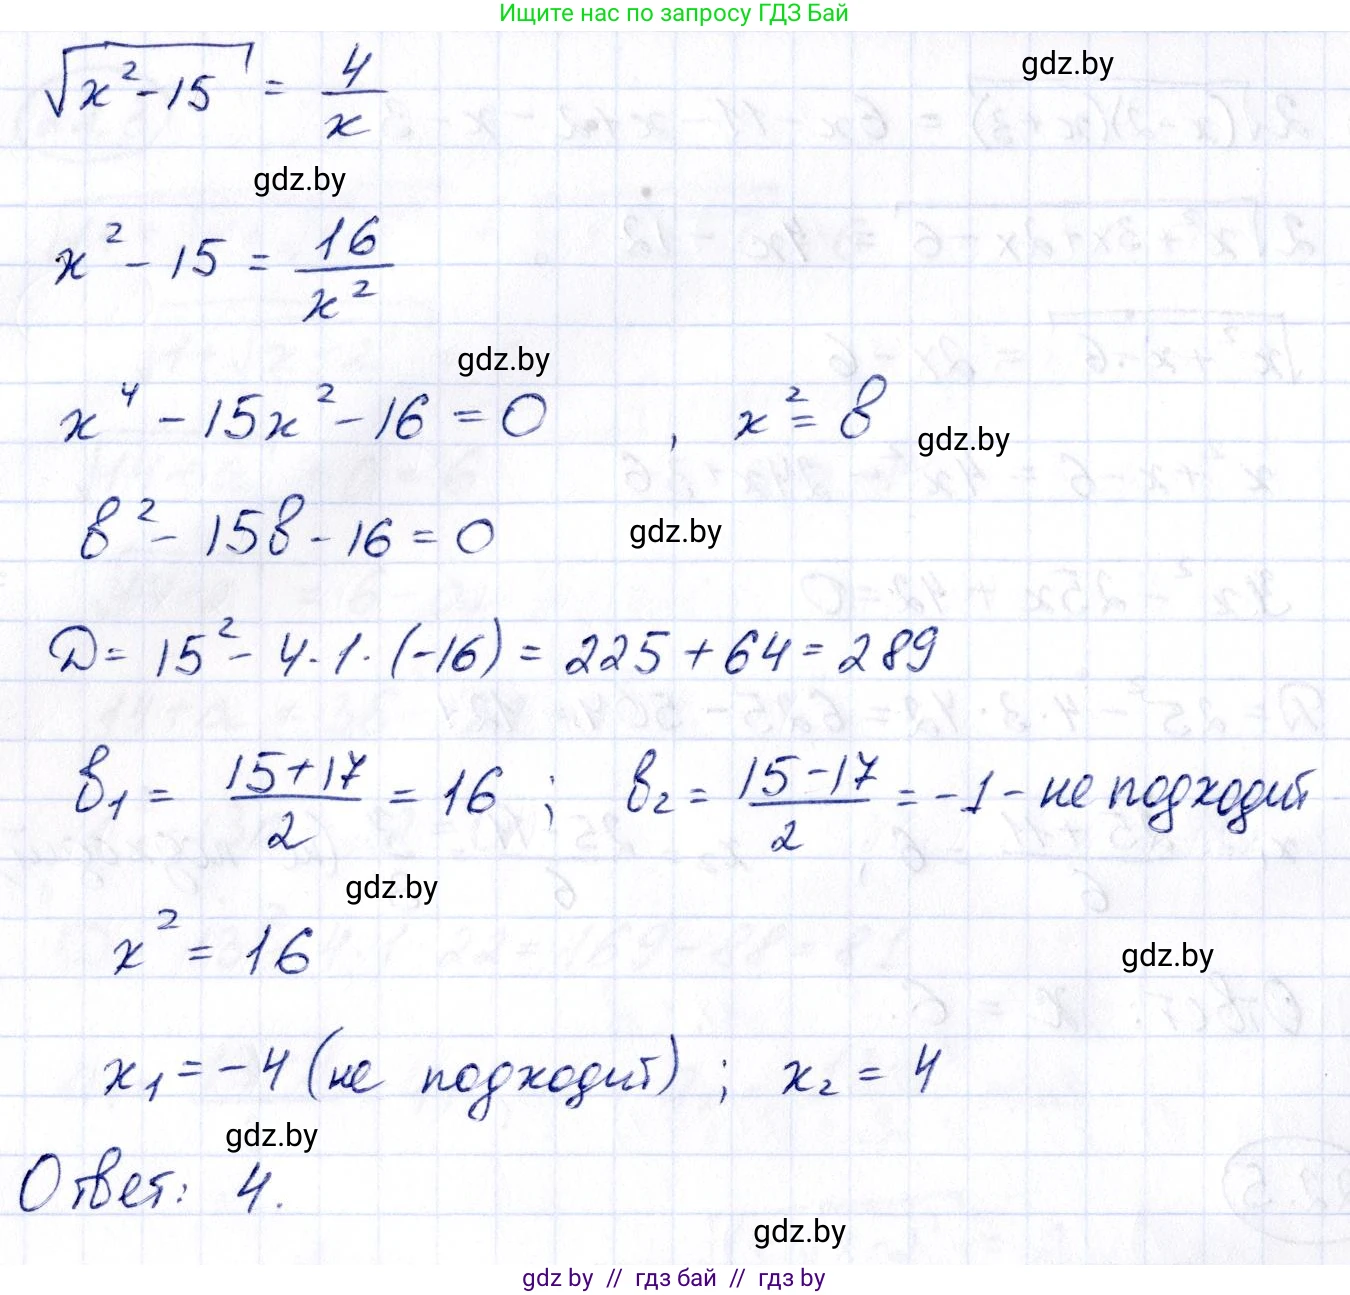 Ищите нас по запросу ГДЗ Бай
√(x² - 15) = 4/x
gdz.by
gdz.by
x² - 15 = 16/x²
gdz.by
x⁴ - 15x² - 16 = 0 , x² = в
gdz.by
в² - 15в - 16 = 0
gdz.by
D = 15² - 4·1·(-16) = 225 + 64 = 289
в₁ = (15+17)/2 = 16 ; в₂ = (15-17)/2 = -1 - не подходит
gdz.by
x² = 16
gdz.by
x₁ = -4 (не подходит) ; x₂ = 4
gdz.by
Ответ: 4.
gdz.by
gdz by // гдз бай // гдз by